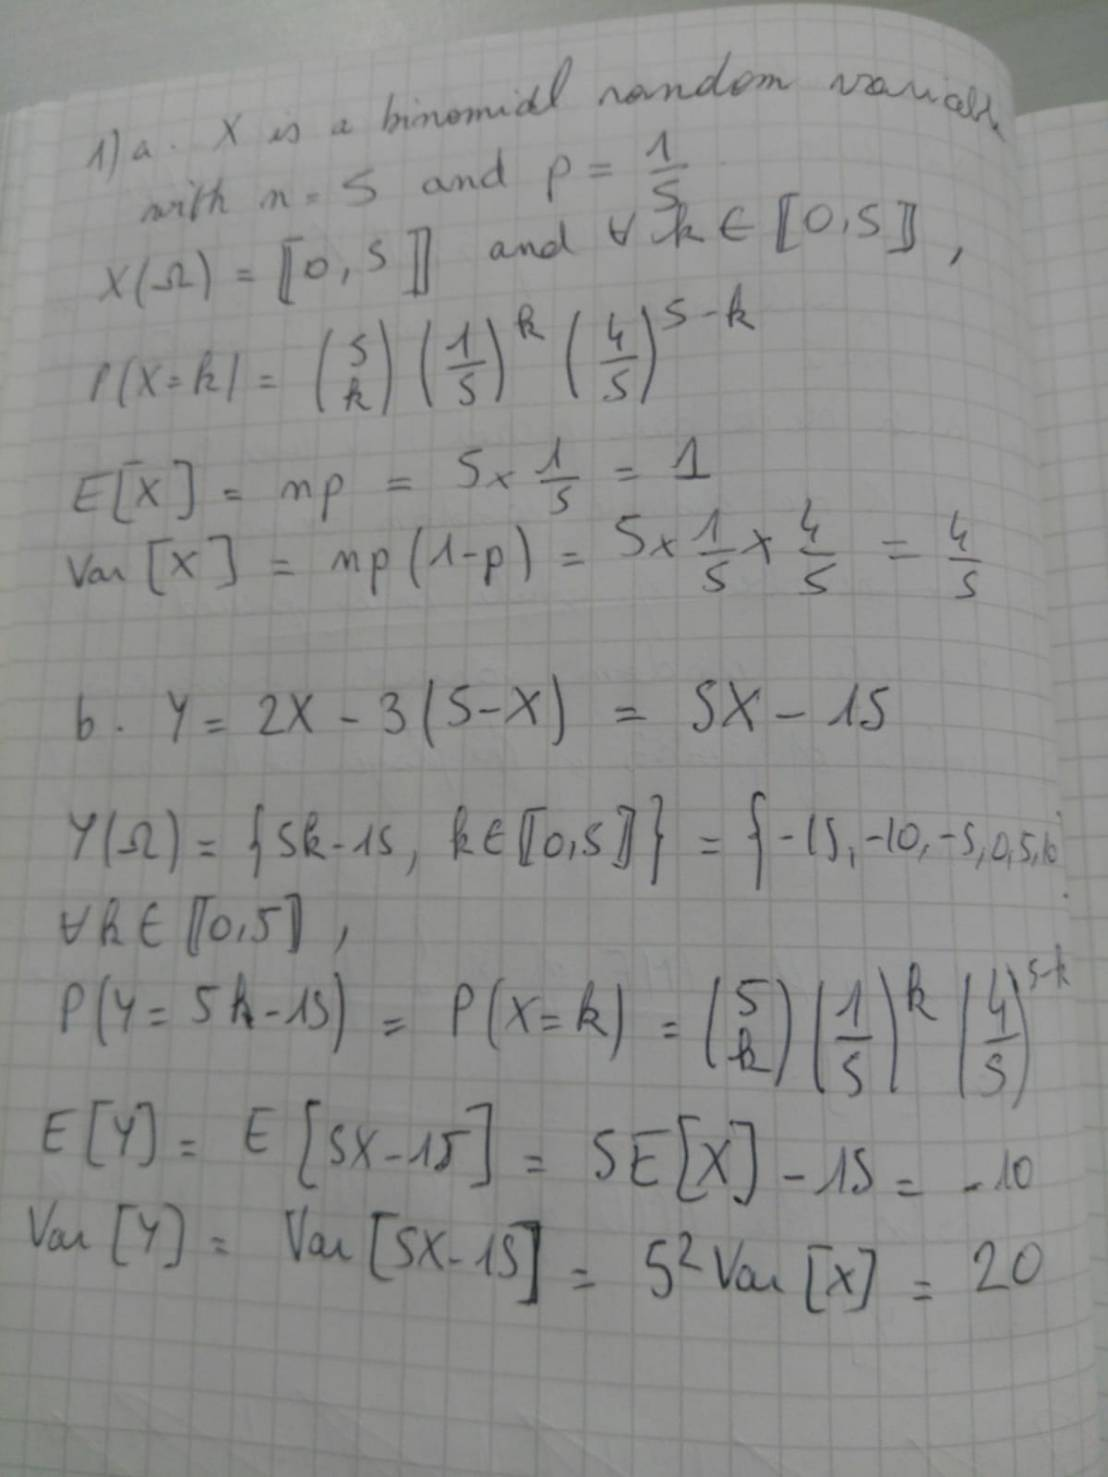 1) a. X is a binomial random variable
with n = 5 and p = 1/5
X(Ω) = ⟦0, 5⟧ and ∀ k ∈ ⟦0, 5⟧,
P(X=k) = (5 k) (1/5)^k (4/5)^(5-k)
E[X] = np = 5 × 1/5 = 1
Var [X] = np(1-p) = 5 × 1/5 × 4/5 = 4/5
b. Y = 2X - 3(5-X) = 5X - 15
Y(Ω) = {5k-15, k ∈ ⟦0,5⟧} = {-15, -10, -5, 0, 5, 10
∀ k ∈ ⟦0,5⟧,
P(Y = 5k-15) = P(X=k) = (5 k) (1/5)^k (4/5)^(5-k)
E[Y] = E[5X-15] = 5E[X] - 15 = -10
Var [Y] = Var [5X-15] = 5² Var [X] = 20